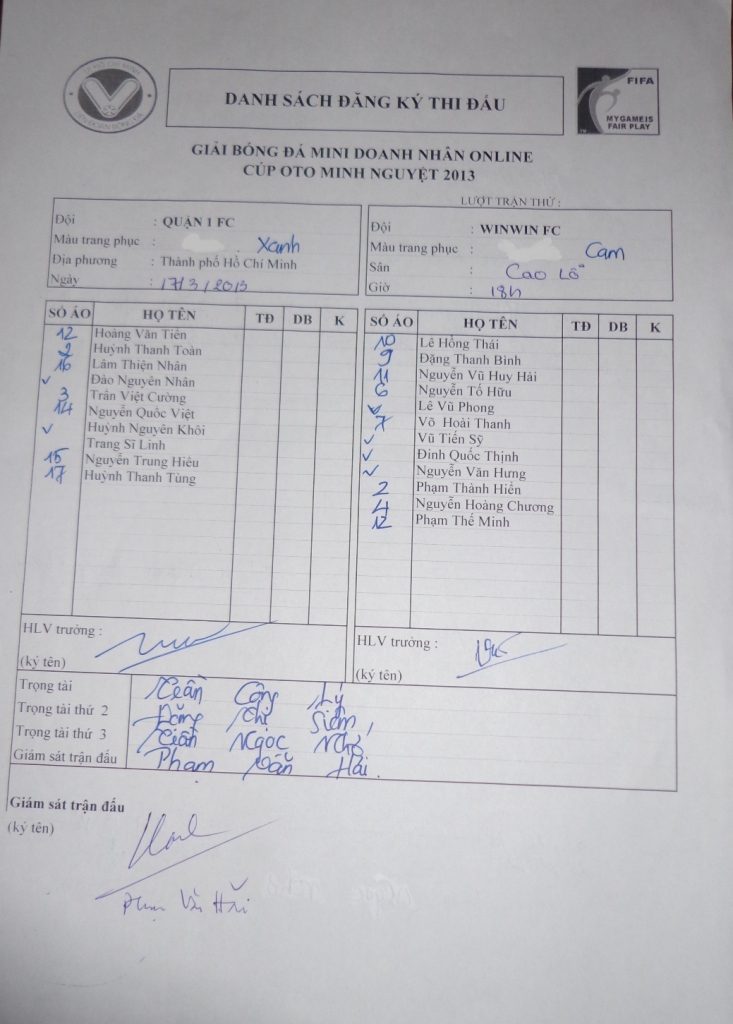 DANH SÁCH ĐĂNG KÝ THI ĐẤU
FIFA
MY GAME IS
FAIR PLAY
GIẢI BÓNG ĐÁ MINI DOANH NHÂN ONLINE
CÚP OTO MINH NGUYỆT 2013
LƯỢT TRẬN THỨ :
Đội : QUẬN 1 FC
Màu trang phục : Xanh
Địa phương : Thành phố Hồ Chí Minh
Ngày : 17/3/2013
Đội : WINWIN FC
Màu trang phục : Cam
Sân : Cao Lỗ
Giờ : 18h
SỐ ÁO HỌ TÊN TĐ DB K
12 Hoàng Văn Tiến
2 Huỳnh Thanh Toàn
16 Lâm Thiện Nhân
✓ Đào Nguyên Nhân
3 Trần Việt Cường
14 Nguyễn Quốc Việt
✓ Huỳnh Nguyên Khôi
Trang Sĩ Linh
15 Nguyễn Trung Hiếu
17 Huỳnh Thanh Tùng
SỐ ÁO HỌ TÊN TĐ DB K
10 Lê Hồng Thái
9 Đặng Thanh Bình
11 Nguyễn Vũ Huy Hải
6 Nguyễn Tố Hữu
✓ Lê Vũ Phong
7 Võ Hoài Thanh
✓ Vũ Tiến Sỹ
✓ Đinh Quốc Thịnh
✓ Nguyễn Văn Hưng
2 Phạm Thành Hiến
4 Nguyễn Hoàng Chương
12 Phạm Thế Minh
HLV trưởng :
(ký tên)
HLV trưởng :
(ký tên)
Trọng tài Trần Công Lý
Trọng tài thứ 2 Đặng Chí
Trọng tài thứ 3 Trần Ngọc Nhớ
Giám sát trận đấu Phạm Văn Hải.
Giám sát trận đấu
(ký tên)
Phạm Văn Hải